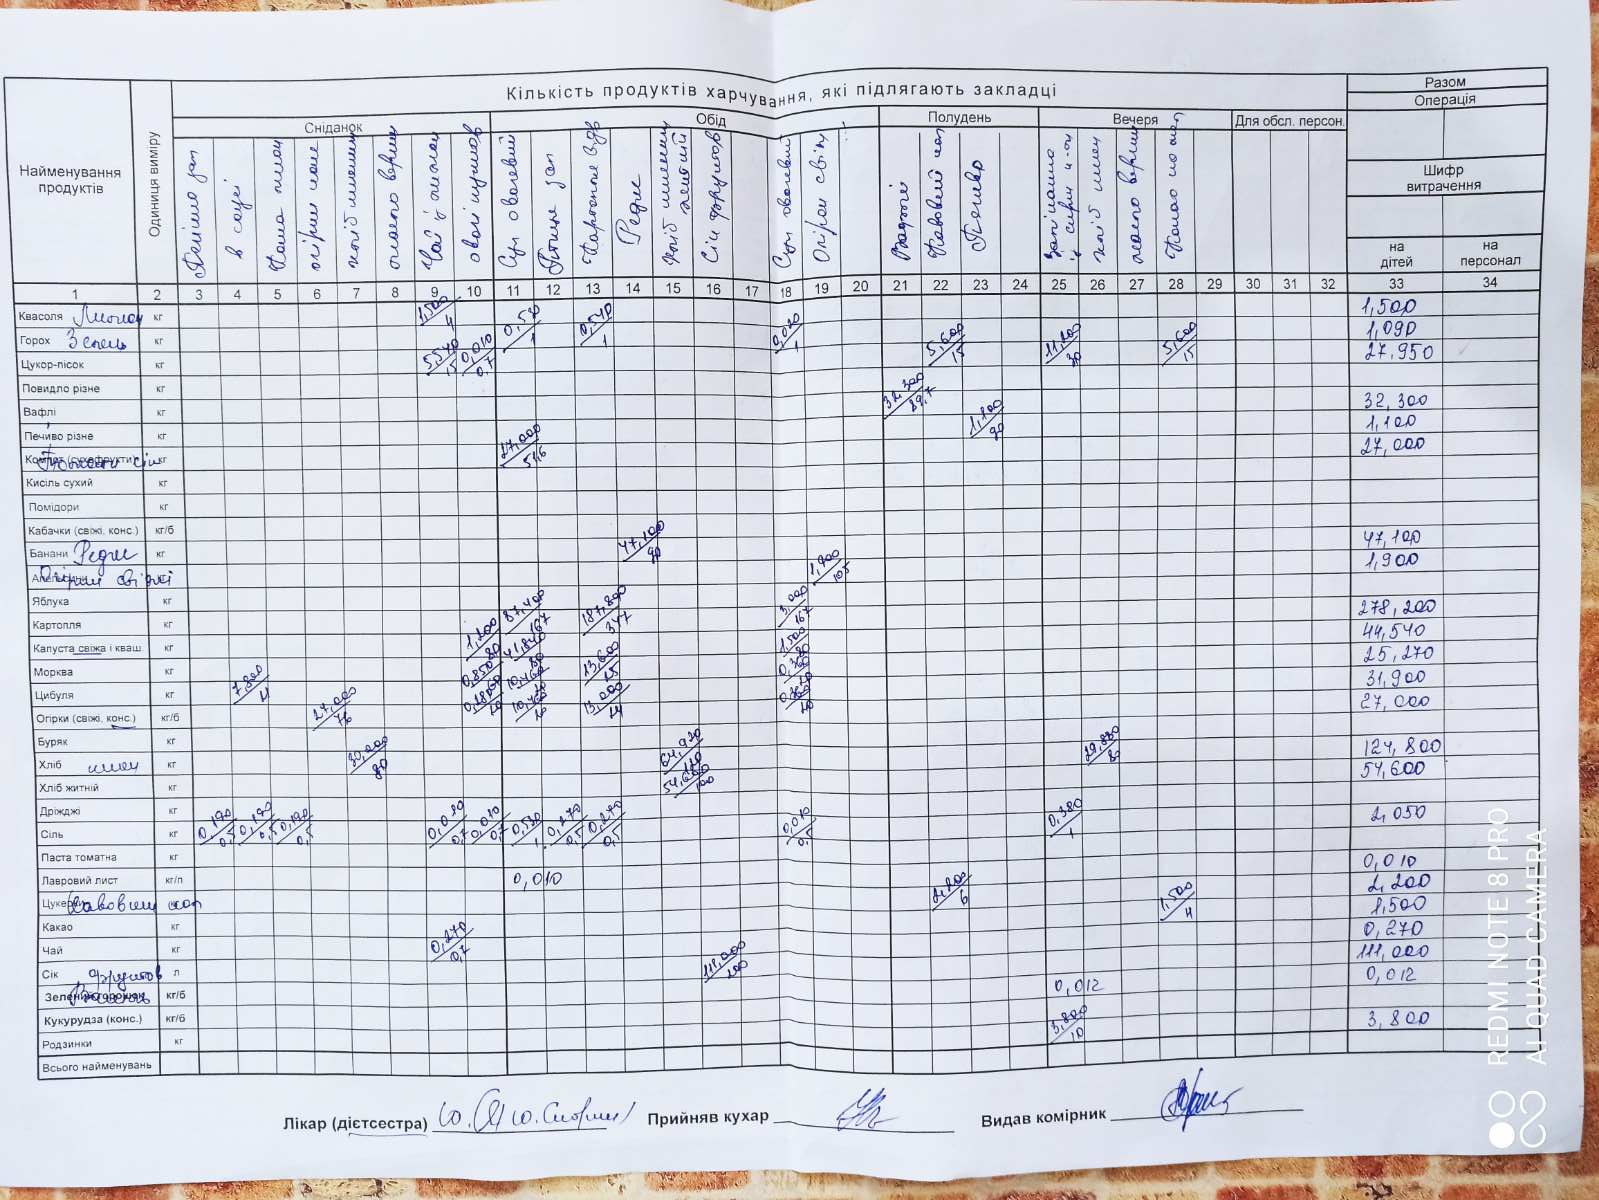 Кількість продуктів харчування, які підлягають закладці
Разом
Операція
Найменування продуктів
Одиниця виміру
Сніданок
Обід
Полудень
Вечеря
Для обсл. персон.
Шифр витрачення
на дітей
на персонал
в соусі
Чай з лимоном
Птиця зап
Редис
Сік фруктов
Какао на мол
1 2 3 4 5 6 7 8 9 10 11 12 13 14 15 16 17 18 19 20 21 22 23 24 25 26 27 28 29 30 31 32 33 34
Квасоля Лимон кг 1,500/4 1,500
Горох Зелень кг 0,530/1 0,540/1 0,020/1 1,090
Цукор-пісок кг 5,540/15 0,010/0,7 5,600/15 11,200/30 5,600/15 27,950
Повидло різне кг
Вафлі кг 32,300/89,7 32,300
Печиво різне кг 1,100/90 1,100
Компот (сухофрукти) кг 27,000/51,6 27,000
Кисіль сухий кг
Помідори кг
Кабачки (свіжі, конс.) кг/б
Банани Редис кг 47,100/90 47,100
Огірки свіжі кг 1,900/105 1,900
Яблука кг
Картопля кг 87,400/167 187,800/347 3,000/167 278,200
Капуста свіжа і кваш. кг 1,200/80 41,840/80 1,500/80 44,540
Морква кг 0,850 10,460/20 13,600/25 0,360/20 25,270
Цибуля кг 7,800 10,460/20 13,000/24 0,360/20 31,900
Огірки (свіжі, конс.) кг/б 27,000/76 27,000
Буряк кг
Хліб пшен кг 30,000/80 64,920/120 29,880/80 124,800
Хліб житній кг 54,600/100 54,600
Дріжджі кг
Сіль кг 0,190/0,5 0,190/0,5 0,190/0,5 0,020/0,7 0,010/0,7 0,530/1 0,270/0,5 0,270/0,5 0,010/0,5 0,380/1 2,050
Паста томатна кг
Лавровий лист кг/п 0,010 0,010
Цукерки 2,200/6 1,500/4 2,200
1,500
Какао кг
Чай кг 0,270/0,7 0,270
Сік фруктов л 111,000/200 111,000
Зелений горошок кг/б 0,012 0,012
Кукурудза (конс.) кг/б 3,800/10 3,800
Родзинки кг
Всього найменувань
Лікар (дієтсестра)
Прийняв кухар
Видав комірник
REDMI NOTE 8 PRO
AI QUAD CAMERA